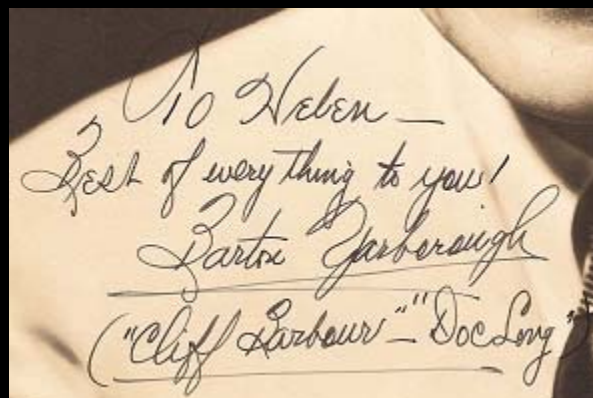 To Helen —
Best of everything to you!
Barton Yarborough
("Cliff Barbour" — "Doc Long")